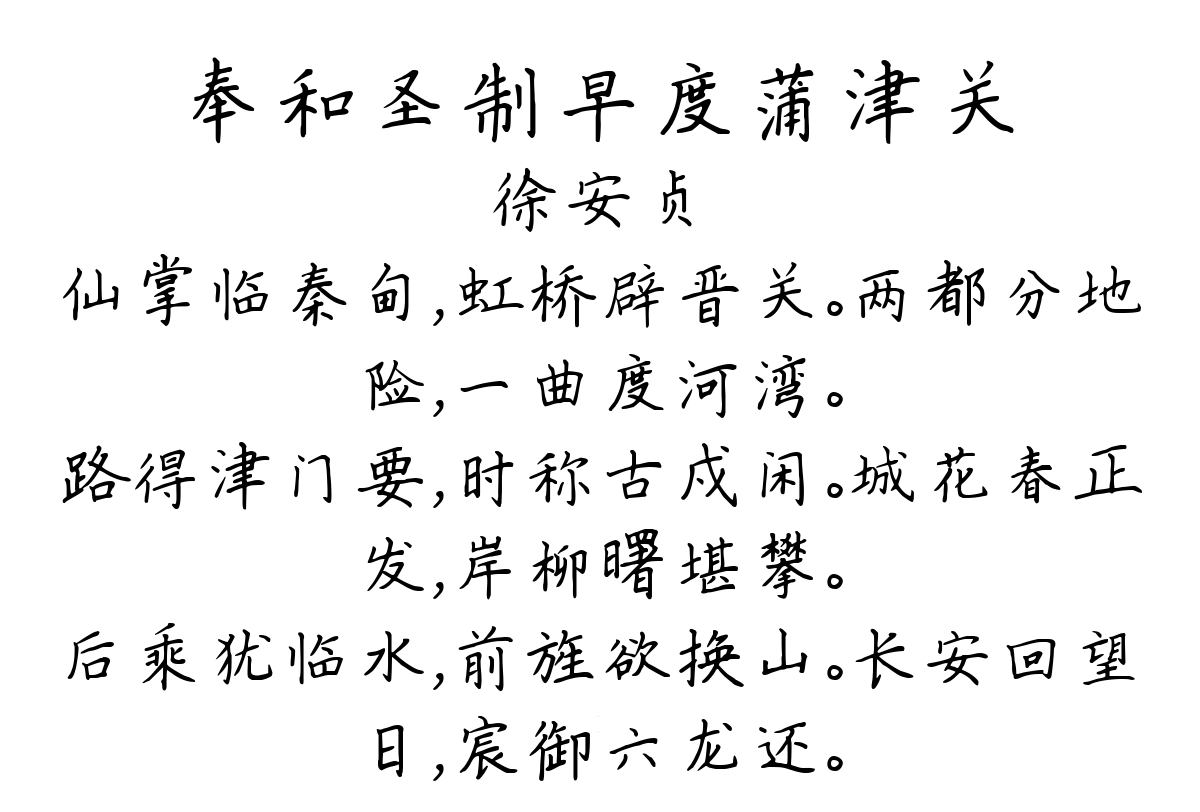 奉和圣制早度蒲津关
徐安贞
仙掌临秦甸,虹桥辟晋关。两都分地
险,一曲度河湾。
路得津门要,时称古戍闲。城花春正
发,岸柳曙堪攀。
后乘犹临水,前旌欲换山。长安回望
日,宸御六龙还。